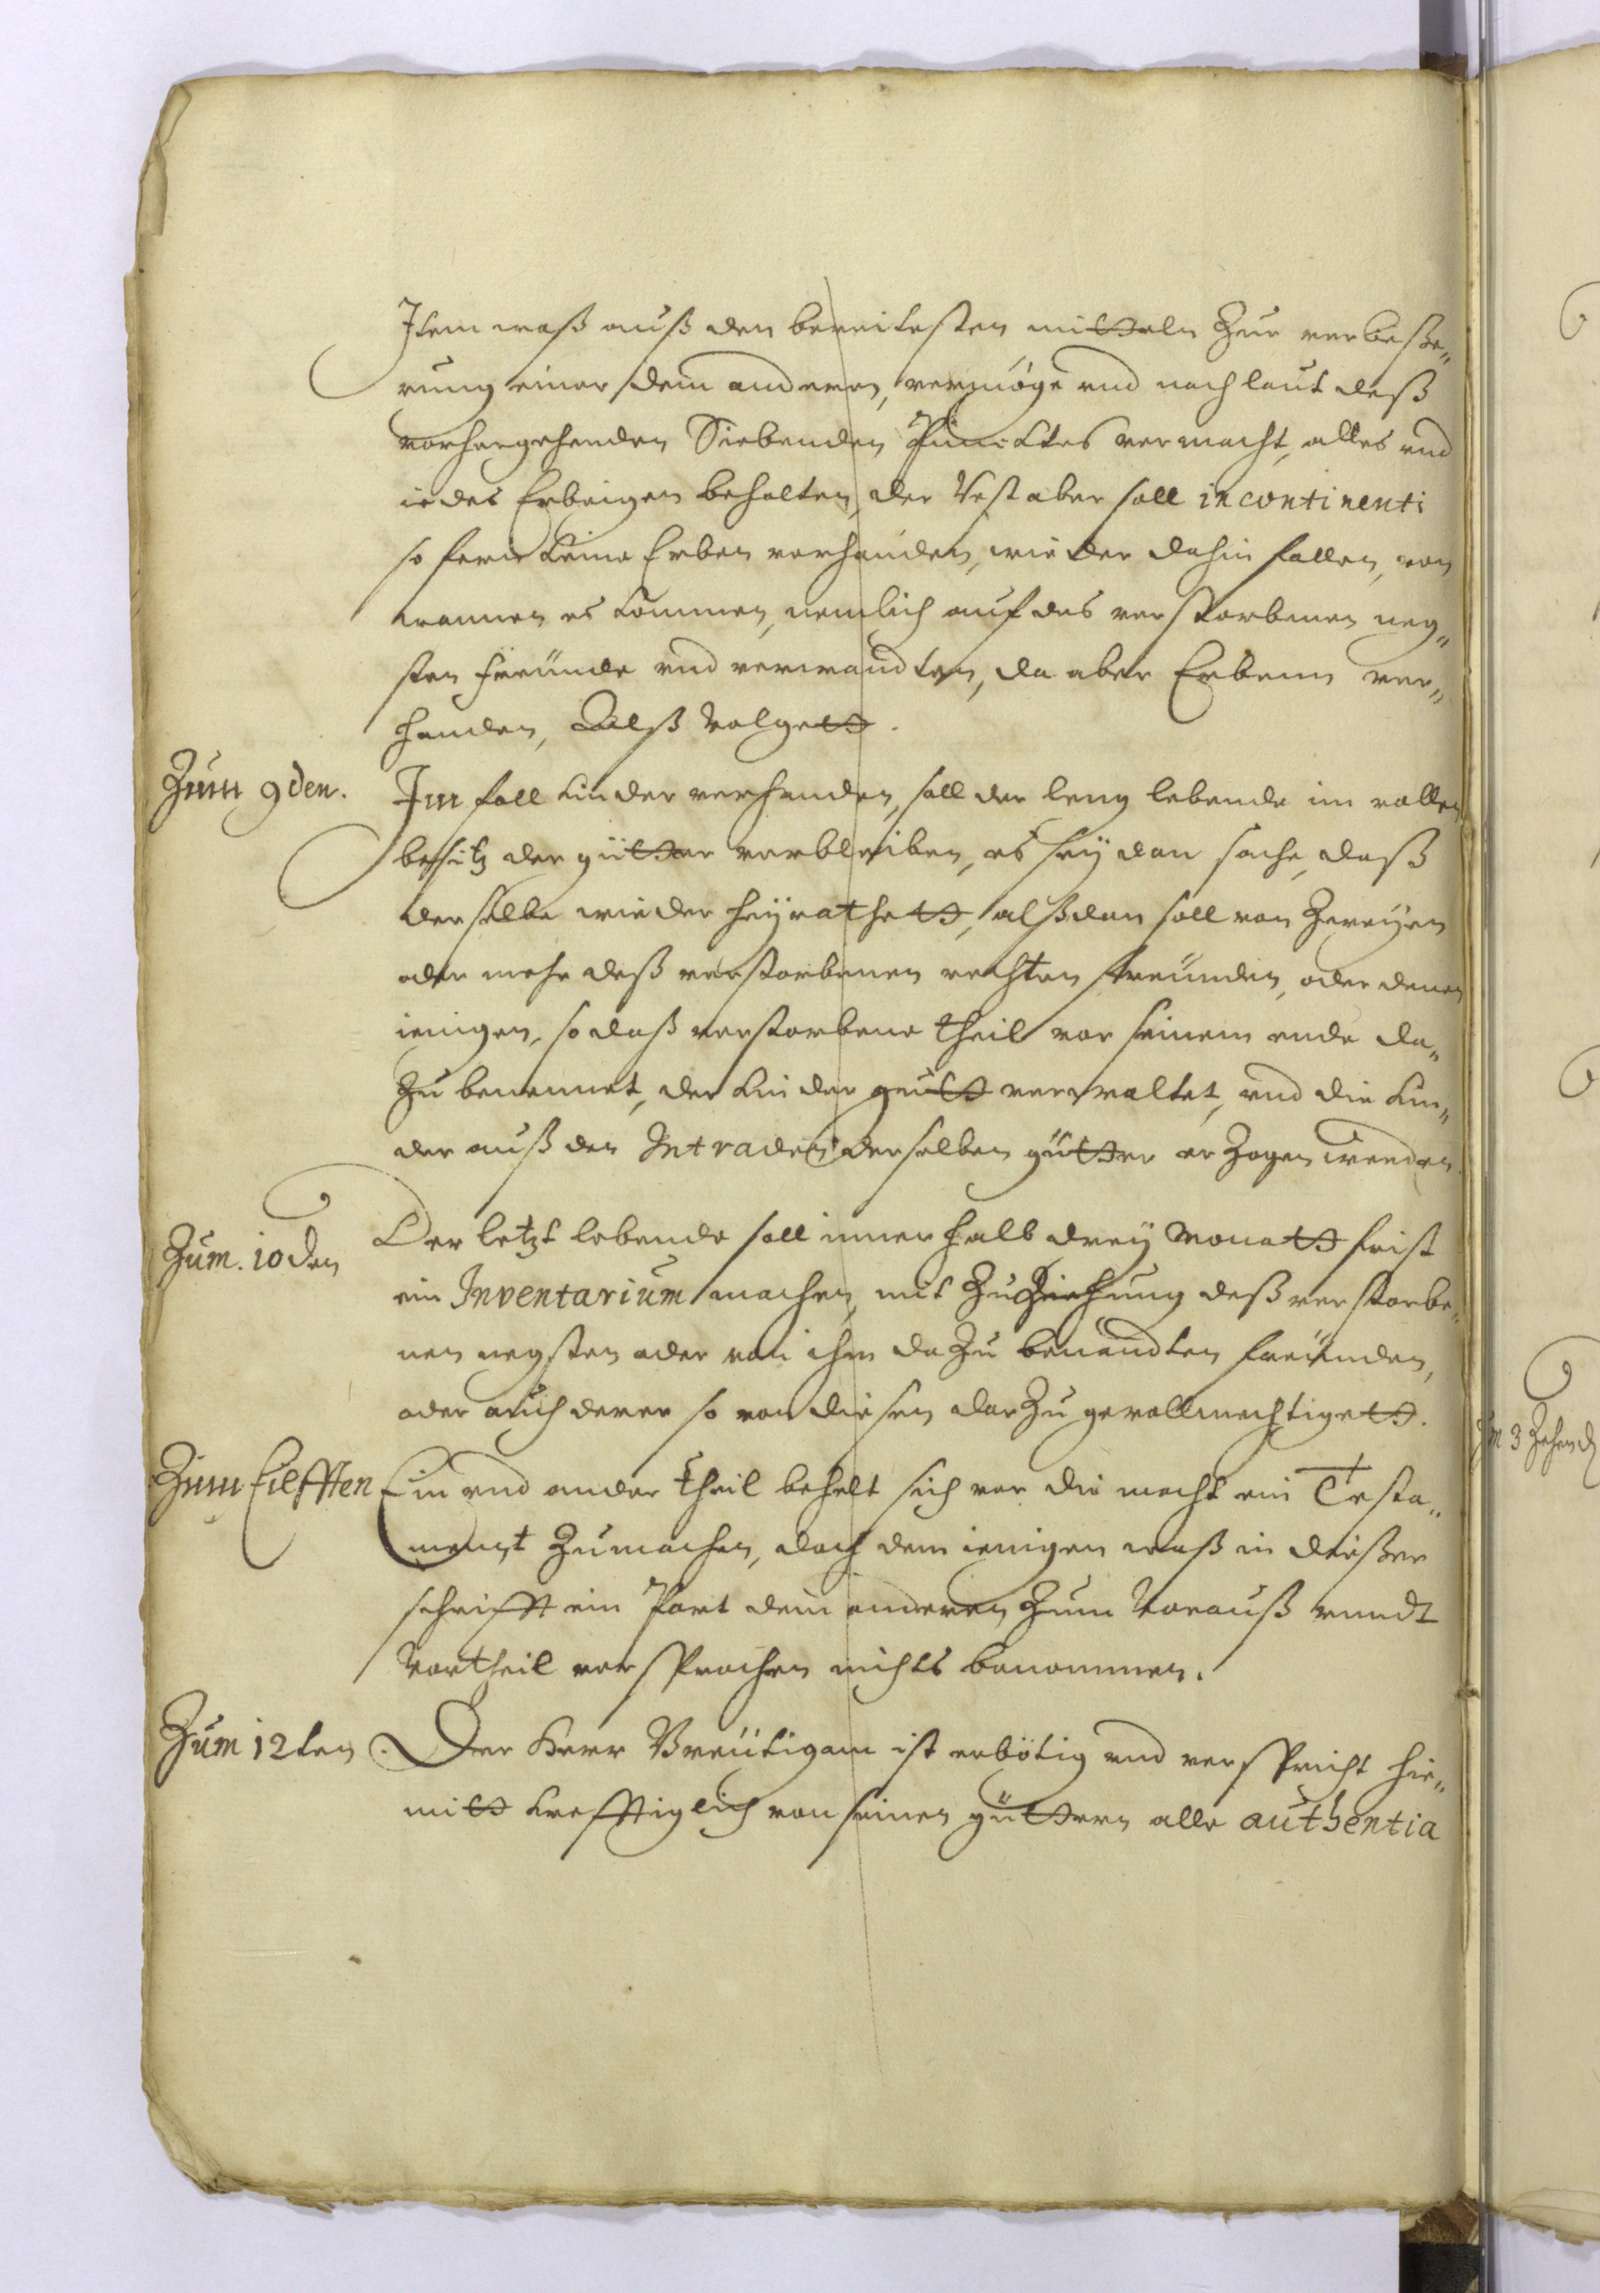 Item waß auß den bereitesten mitteln Zur verbeße„
rung einer dem anderen, vermöge und nach laut deß
vorhergehenden Siebenden Puncktes vermacht, alles und
iedes Erbeigen behalten, der Rest aber soll incontinenti
so fern keine Erben vorhanden, wieder dahin fallen, von
wannen es kommen, nemlich auf des verstorbenen neg„
sten freunde und verwandten, da aber Erbenn ver„
handen, Alß Volgett.
Zum 9den. Im fall kinder verhanden, soll der leng lebende im vollen
besitz der gütter verbleiben, es seÿ dan sache, daß
derselbe wieder heÿrathett, alßdan soll von Zweÿen
oder mehr deß verstorbenen rechten freunden, oder denen
ienigen, so daß verstorbene theil vor seinem ende da„
Zu benennet, der kinder gutt verwaltet, und die kin„
der auß den Intraden derselben gütter erZogen werden.
Zum. 10den Der letzt lebende soll innerhalb dreÿ Monatt frist
ein Inventarium machen, mit ZuZiehung deß verstorbe„
nen negsten oder von ihm daZu benandten freunden,
oder auch derer so von diesen darZu gevollmechtigett.
Zum Eilfften Ein und ander theil behelt sich vor die macht ein Testa„
ment Zumachen, doch dem ienigen waß in dießer
schrifft ein Part dem anderen Zum Vorauß unndt
Vortheil versprochen nichts benommen.
Zum 12ten. Der Herr Breutigam ist erbötig und verspricht hie„
mitt krefftiglich von seinen güttern alle authentia